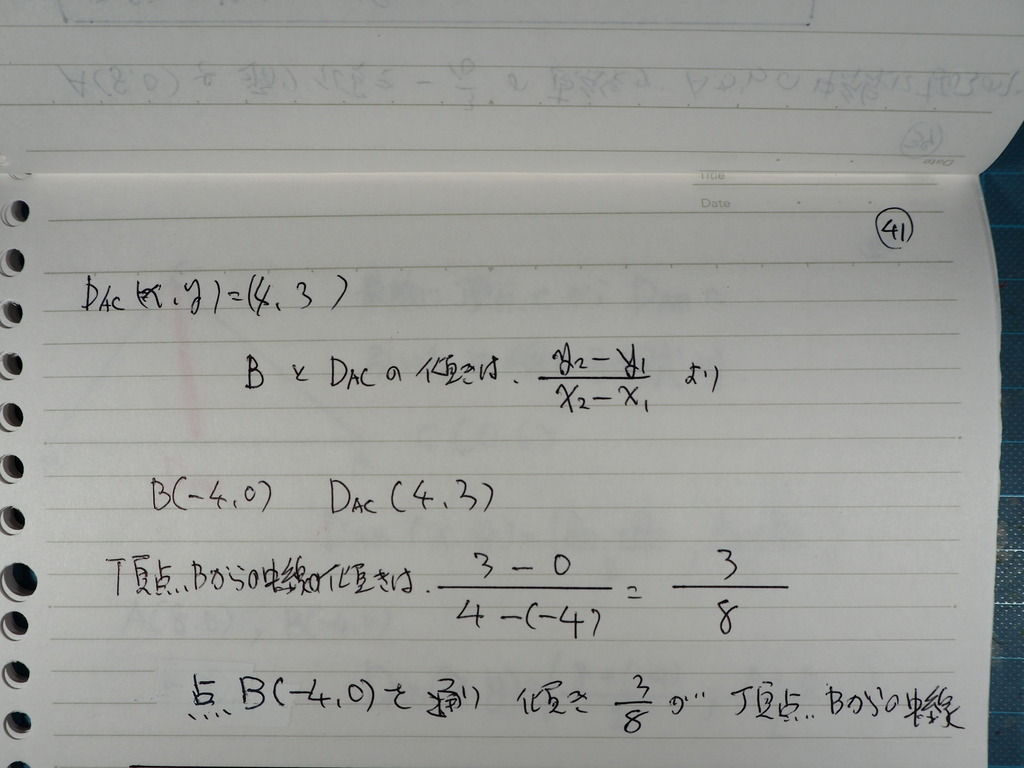 Title
Date
㊶
D_AC(x, y)=(4, 3)
BとD_ACの傾きは、 (y₂−y₁)/(x₂−x₁) より
B(−4,0) D_AC(4,3)
頂点Bからの中線の傾きは、 (3−0)/(4−(−4)) = 3/8
点B(−4,0)を通り 傾き 3/8 が 頂点Bからの中線